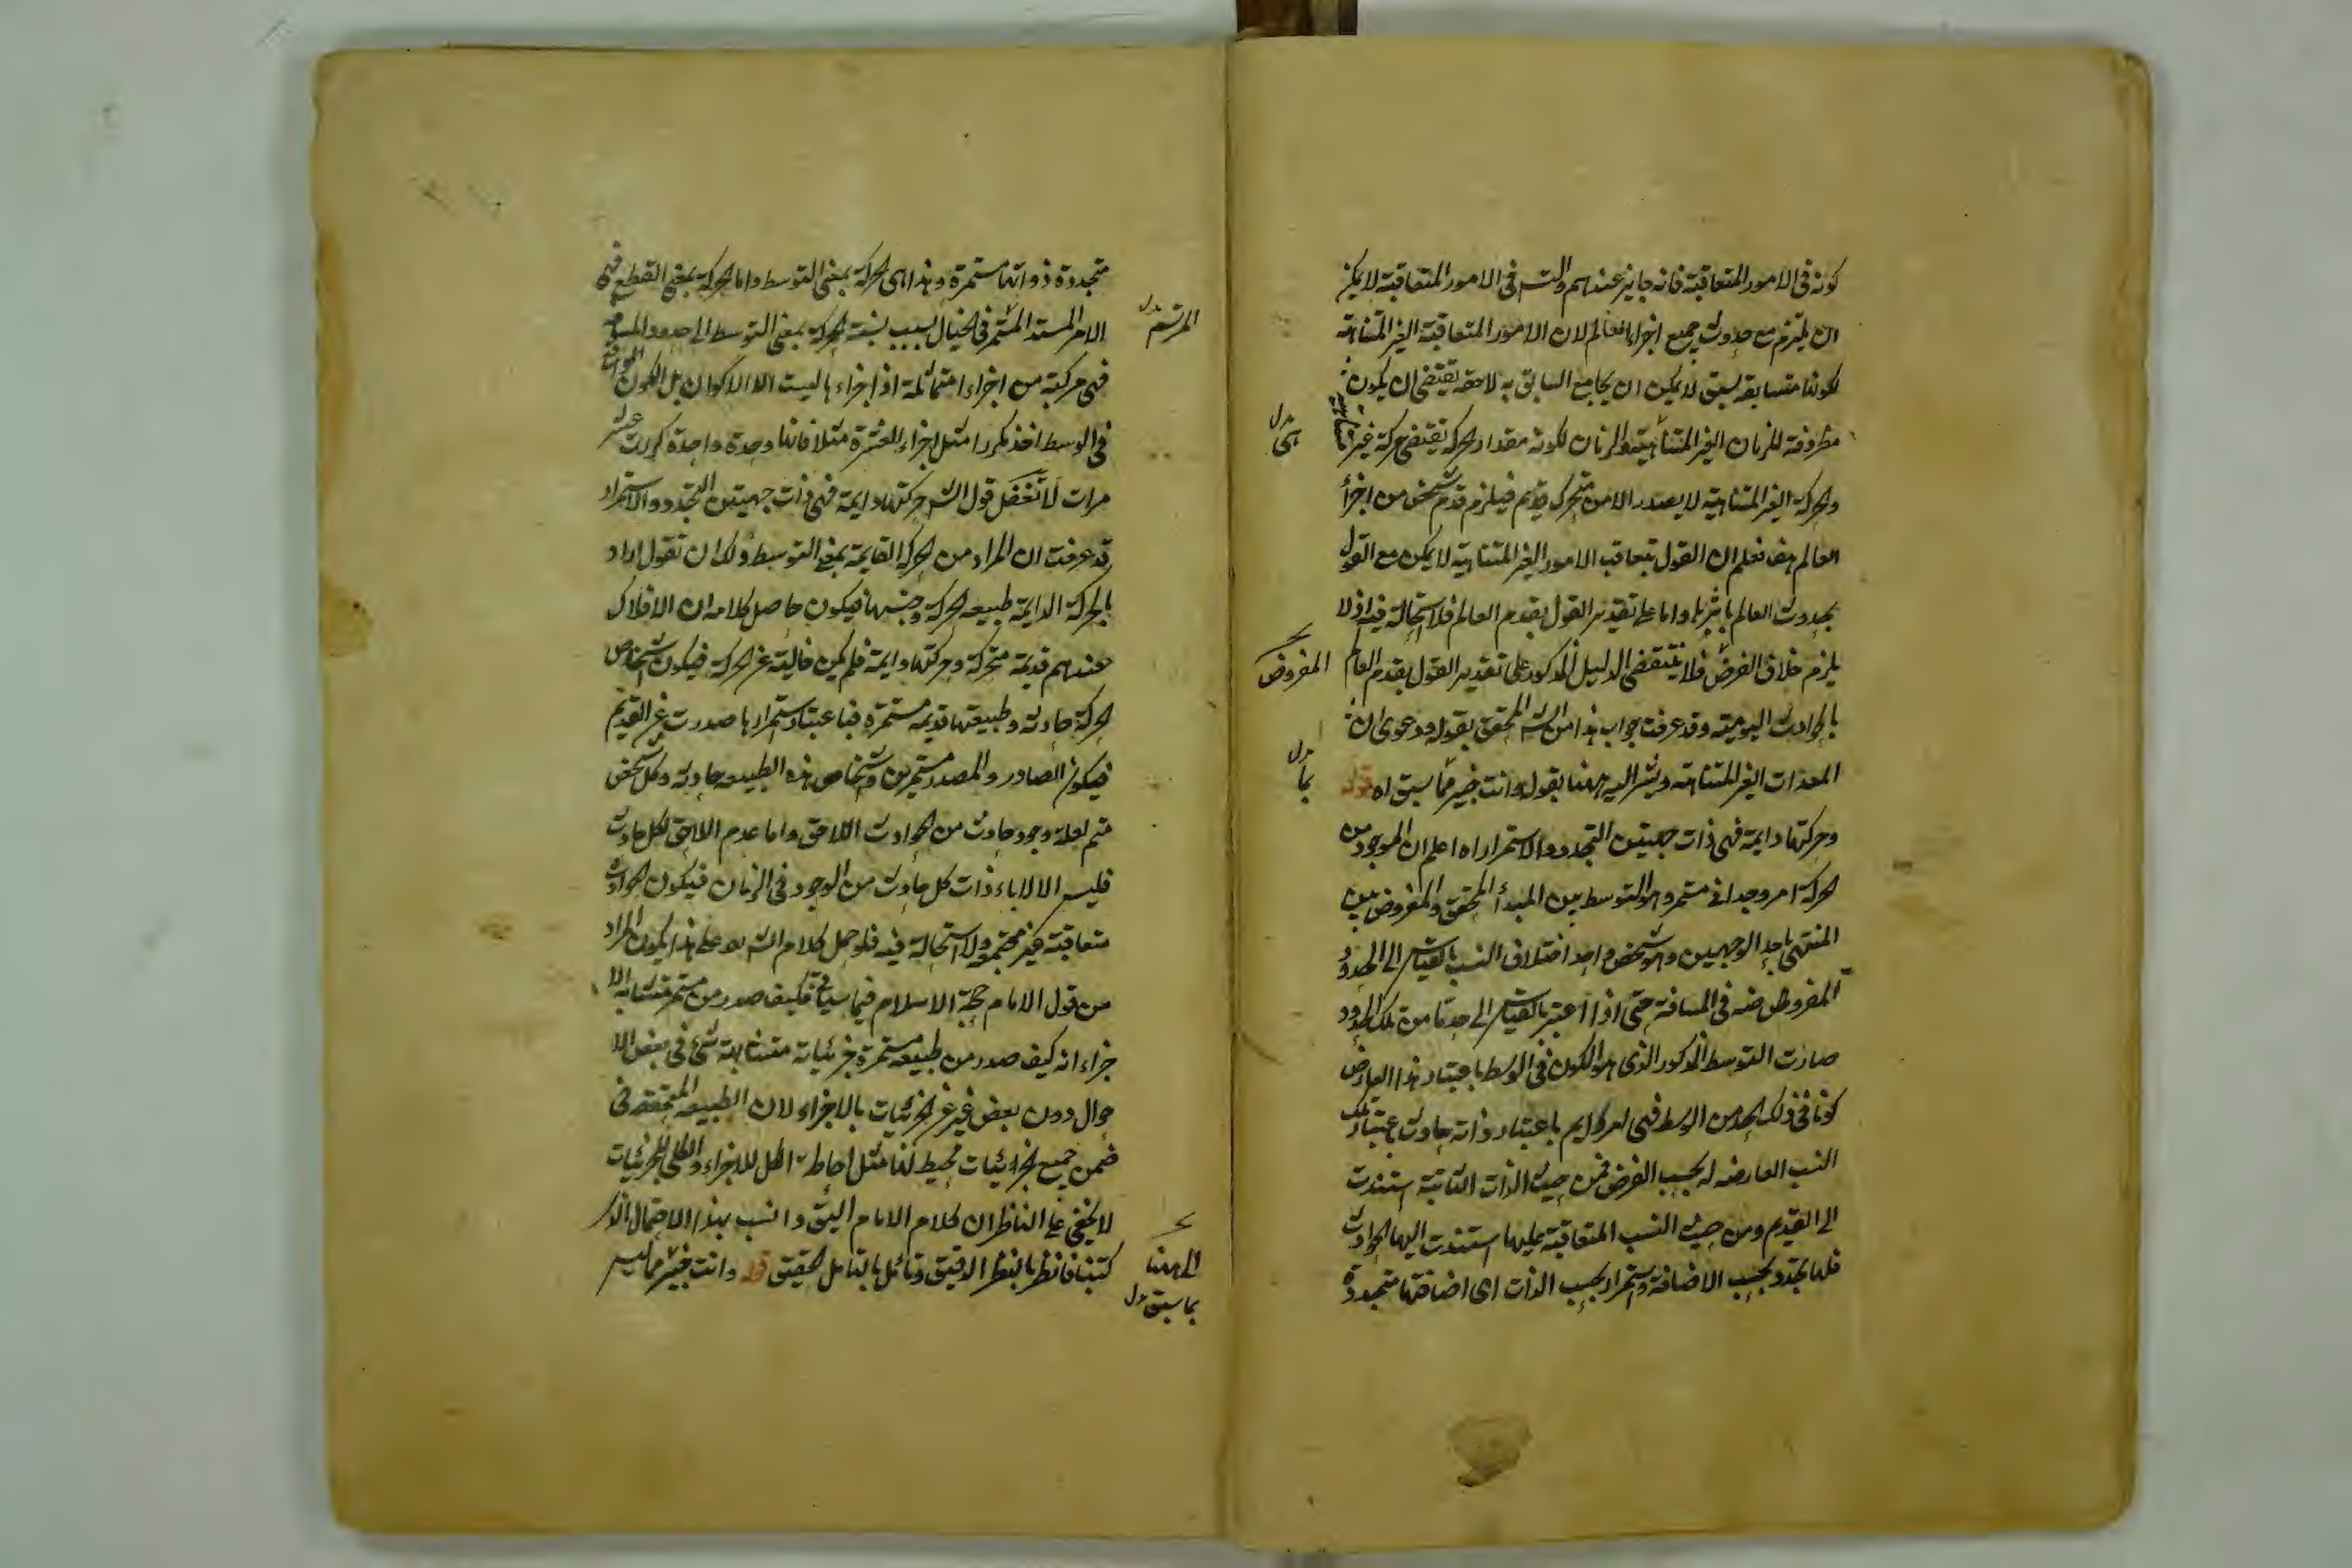 كونه فى الامور المتعاقبة فانه جايز عندهم والتس فى الامور المتعاقبة لا يمكن
ان يلتزم مع حدوث جميع اجزاء العالم لان الامور المتعاقبة الغير المتناهية
لكونها متسابقة بسبق لا يمكن ان يجامع السابق به لاحقه يقتضى ان يكون
مظروفة للزمان الغير المتناهية والزمان لكونه مقدار الحركة يقتضى حركة غير متناهية
هى بدل
والحركة الغير المتناهية لا يصدر الا من متحرك قديم فيلزم قدم شخص من اجزأ
العالم هف فعلم ان القول بتعاقب الامور الغير المتناهية لا يمكن مع القول
بحدوث العالم باشره واما على تقدير القول بقدم العالم فلا استحالة فيه اذ لا
يلزم خلاف الفرض فلا ينتقض الدليل المذكور على تقدير القول بقدم العالم
المفروض
بالحوادث اليومية وقد عرفت جواب هذا من الش المحقق بقوله ودعوى ان
المعدات الغير المتناهية ويشر اليه ههنا بقوله وانت خبير مما سبق اه قوله
بما بدل
وحركتها دايمة فهى ذات جهتين التجدد والاستمرار اه اعلم ان الموجود من
الحركة امر وحدانى مستمر وهو التوسط بين المبدأ المحقق والمفروض بين
المنتهى باحد الوجهين وهو شخص واحد اختلاف النسب بالقياس الى الحدود
المفروضه فى المسافة حتى اذا اعتبر بالقياس الى حد ما من تلك الحدود
صارت التوسط المذكور الذى هو الكون فى الوسط باعتبار هذا العارض
كونا فى ذلك الحد من الوسط فهى امر دايم باعتبار ذاته حادث باعتبار تلك
النسب العارضه له بحسب الفرض فمن حيث الذات الثابتة استندت
الى القديم ومن حيث النسب المتعاقبة عليها استندت اليها الحوادث
فلها تجدد بحسب الاضافة واستمرار بحسب الذات اى اضافتها متجددة
متجددة ذواتها مستمرة وهذا هى الحركة بمعنى التوسط واما الحركة بمعنى القطع فهى
الامر الممتد المستمر فى الخيال بسبب نسبة الحركة بمعنى التوسط الى حدود المسافة
المرتسم بدل
فهى مركبة من اجزاء متماثلة اذ اجزاءها ليست الا الاكوان بل الكون
فى الوسط اخذ مكررا مثل اجزاء العشرة مثلا فانها وحدة واحدة كررت عشر
مرات لا تغفل قول الش حركتها دايمة فهى ذات جهتين التجدد والاستمرار
قد عرفت ان المراد من الحركة القايمة بمعنى التوسط ولك ان تقول اراد
بالحركة الدايمة طبيعة الحركة وجنسها فيكون حاصل كلامه ان الافلاك
عندهم قديمة متحركة وحركتها دايمة فلم يكن خالية عن الحركة فيكون اشخاص
الحركة حادثة وطبيعتها قديمة مستمرة فباعتبار استمرارها صدرت عن القديم
فيكون الصادر والمصدر مستمرين واشخاص هذه الطبيعة حادثة وكل شخص
متمم لعلة وجود حادث من الحوادث اللاحق واما عدم اللاحق لكل حادث
فليس الا لاباء ذات كل حادث من الوجود فى الزمان فيكون الحوادث
متعاقبة غير مجتمعة ولا استحالة فيه فلو حمل كلام الش على هذا يكون المراد
من قول الامام حجة الاسلام فيما سياتى فكيف صدر من مستمر متشابه الا
جزاء انه كيف صدر من طبيعة مستمرة جزئياته متشابهة شئ فى بعض الا
حوال دون بعض فيعبر عن الجزئيات بالاجزاء لان الطبيعه المتحققة فى
ضمن جميع الجزئيات محيط لها مثل احاطة الكل للاجزاء والكلى للجزئيات
لا يخفى على الناظر ان كلام الامام اليق وانسب بهذا الاحتمال الذى
كتبنا فانظر بالنظر الدقيق وتأمل بالتامل الحقيق قوله وانت خبير مما ليس
الى ههنا
بما سبق بدل